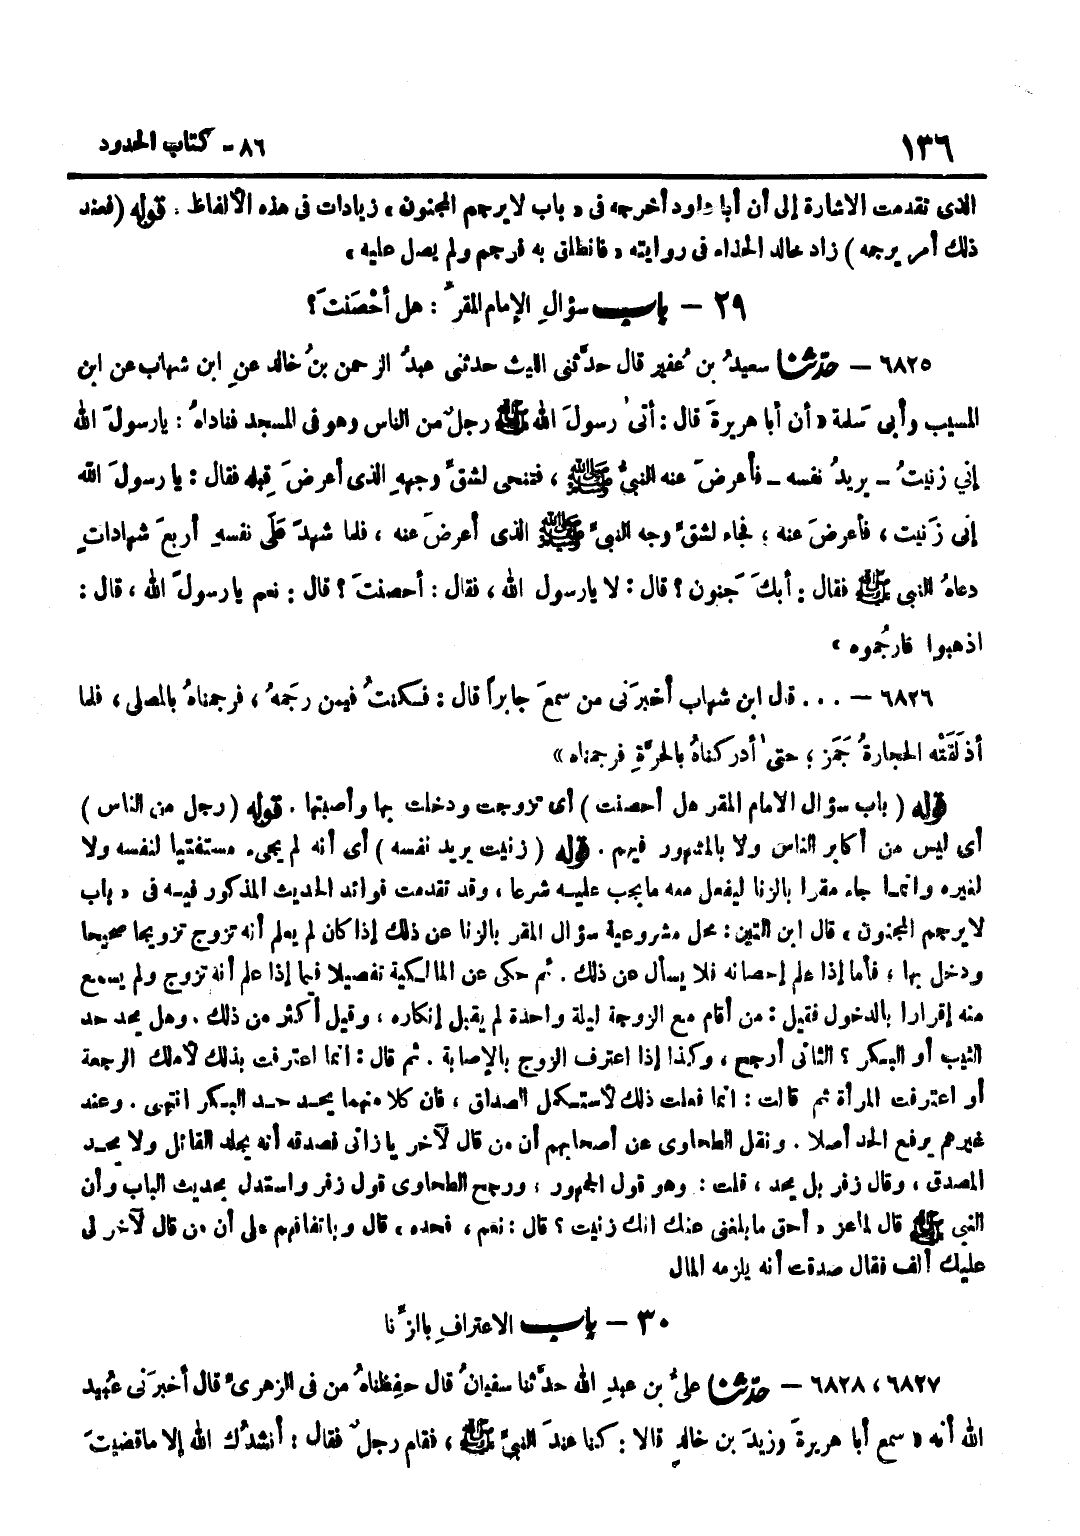 ١٣٦
٨٦ - كتاب الحدود
الذى تقدمت الاشارة إلى أن أبا داود أخرجه فى « باب لا يرجم المجنون ، زيادات فى هذه الألفاظ . قوله (فعند
ذلك أمر برجمه ) زاد خالد الحذاء فى روايته « فانطلق به فرجم ولم يصل عليه »
٢٩ – باب سؤالِ الإمام المقرَّ : هل أحْصَنتَ ؟
٦٨٢٥ – حدّثنا سعيدُ بن عُفير قال حدَّثنى الليث حدثنى عبدُ الرحمن بنُ خالد عنِ ابن شهاب عن ابن
المسيب وأبى سَلمة « أن أبا هريرةَ قال : أتىٰ رسولَ الله ﷺ رجلٌ من الناس وهو فى المسجد فناداهُ : يارسولَ الله
إني زنيتُ – يريدُ نفسه – فأعرضَ عنه النبىُّ ﷺ ، فتنحى لشقِّ وجههِ الذى أعرضَ قِبله فقال : يا رسولَ الله
إنى زَنيت ، فأعرضَ عنه ؛ فجاء لشقِّ وجه النبىِّ ﷺ الذى أعرضَ عنه ، فلما شهدَ عَلَى نفسهِ أربعَ شهاداتٍ
دعاهُ النبى ﷺ فقال : أبكَ جَنون ؟ قال : لا يارسول الله ، فقال : أحصنتَ ؟ قال : نعم يارسولَ الله ، قال :
اذهبوا فارجُموه »
٦٨٢٦ – . . . قال ابن شهاب أخبرَنى من سمعَ جابراً قال : فكنتُ فيمن رجَمهُ ، فرجمناهُ بالمصلى ، فلما
أذلَقَتْه الحجارةُ جَمَز ؛ حتىٰ أدركناهُ بالحرَّةِ فرجمناه »
قوله ( باب سؤال الامام المقر هل أحصنت ) أى تزوجت ودخلت بها وأصبتها . قوله ( رجل من الناس )
أى ليس من أكابر الناس ولا بالمشهور فيهم . قوله ( زنيت يريد نفسه ) أى أنه لم يجىء مستفتيا لنفسه ولا
لغيره وانما جاء مقرا بالزنا ليفعل معه مايجب عليه شرعا ، وقد تقدمت فوائد الحديث المذكور فيه فى « باب
لايرجم المجنون ، قال ابن التين : محل مشروعية سؤال المقر بالزنا عن ذلك إذا كان لم يعلم أنه تزوج تزويجا صحيحا
ودخل بها ، فأما إذا علم إحصانه فلا يسأل عن ذلك . ثم حكى عن المالكية تفصيلا فيما إذا علم أنه تزوج ولم يسمع
منه إقرارا بالدخول فقيل : من أقام مع الزوجة ليلة واحدة لم يقبل إنكاره ، وقيل أكثر من ذلك . وهل يحد حد
الثيب أو البكر ؟ الثانى أرجح ، وكذا إذا اعترف الزوج بالإصابة . ثم قال : انما اعترفت بذلك لأملك الرجعة
أو اعترفت المرأة ثم قالت : انما فعلت ذلك لأستكمل الصداق ، فان كلا منهما يحد حد البكر انتهى . وعند
غيرهم يرفع الحد أصلا . ونقل الطحاوى عن أصحابهم أن من قال لآخر يا زانى فصدقه أنه يجلد القائل ولا يحد
المصدق ، وقال زفر بل يحد ، قلت : وهو قول الجمهور ، ورجح الطحاوى قول زفر واستدل بحديث الباب وأن
النبى ﷺ قال لماعز « أحق مابلغنى عنك انك زنيت ؟ قال : نعم ، فحده ، قال وباتفاقهم على أن من قال لآخر لى
عليك ألف فقال صدقت أنه يلزمه المال
٣٠ – باب الاعترافِ بالزِّنا
٦٨٢٧ ، ٦٨٢٨ – حدّثنا علىُّ بن عبدِ الله حدَّثنا سفيانُ قال حفِظناهُ من فى الزهرىِّ قال أخبرَنى عُبيد
الله أنه « سمع أبا هريرةَ وزيدَ بن خالدٍ قالا : كنا عندَ النبىِّ ﷺ ، فقام رجلٌ فقال : أنشدُك الله إلا ماقضيتَ